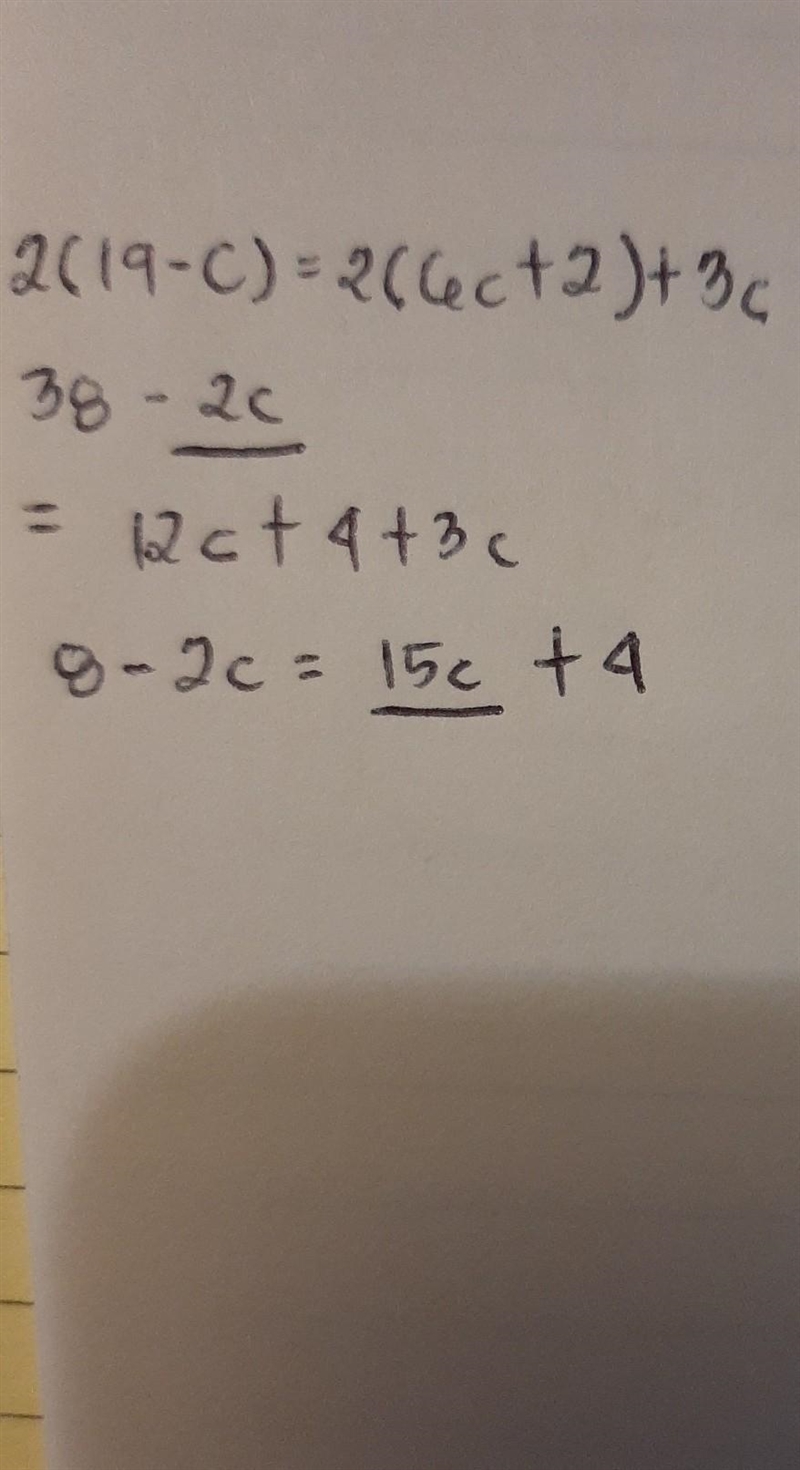 2(19-C)=2(6c+2)+3c
38 - 2c
= 12c + 4 + 3c
8 - 2c = 15c + 4